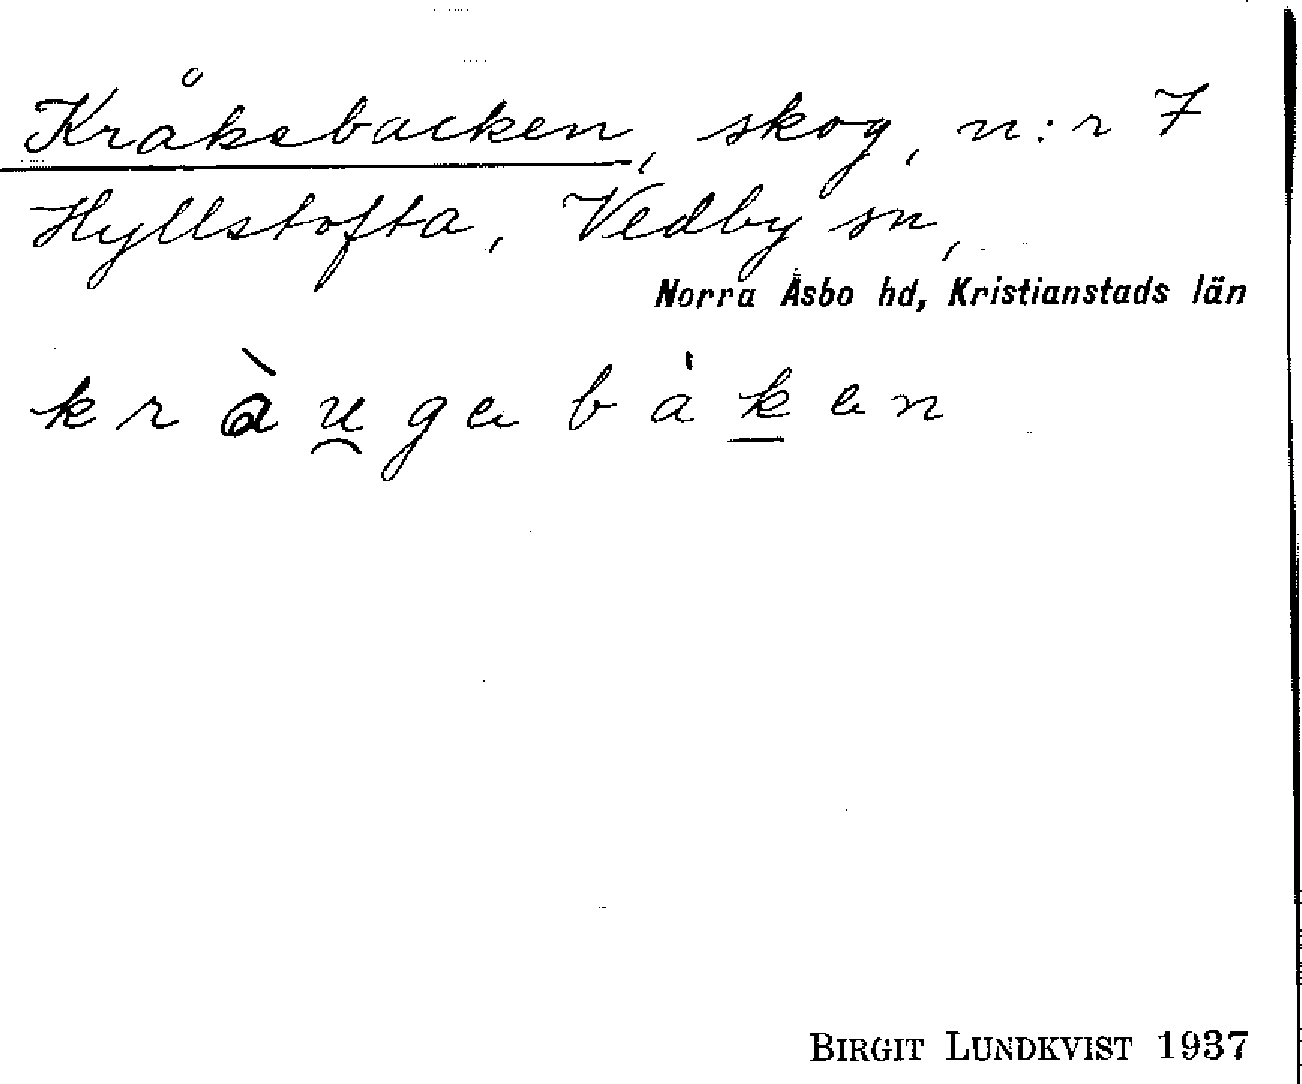 Kråkebacken, skog, n:r 7
Hyllstofta, Vedby sn,
Norra Åsbo hd, Kristianstads län
kràu̯gəbákən
BIRGIT LUNDKVIST 1937